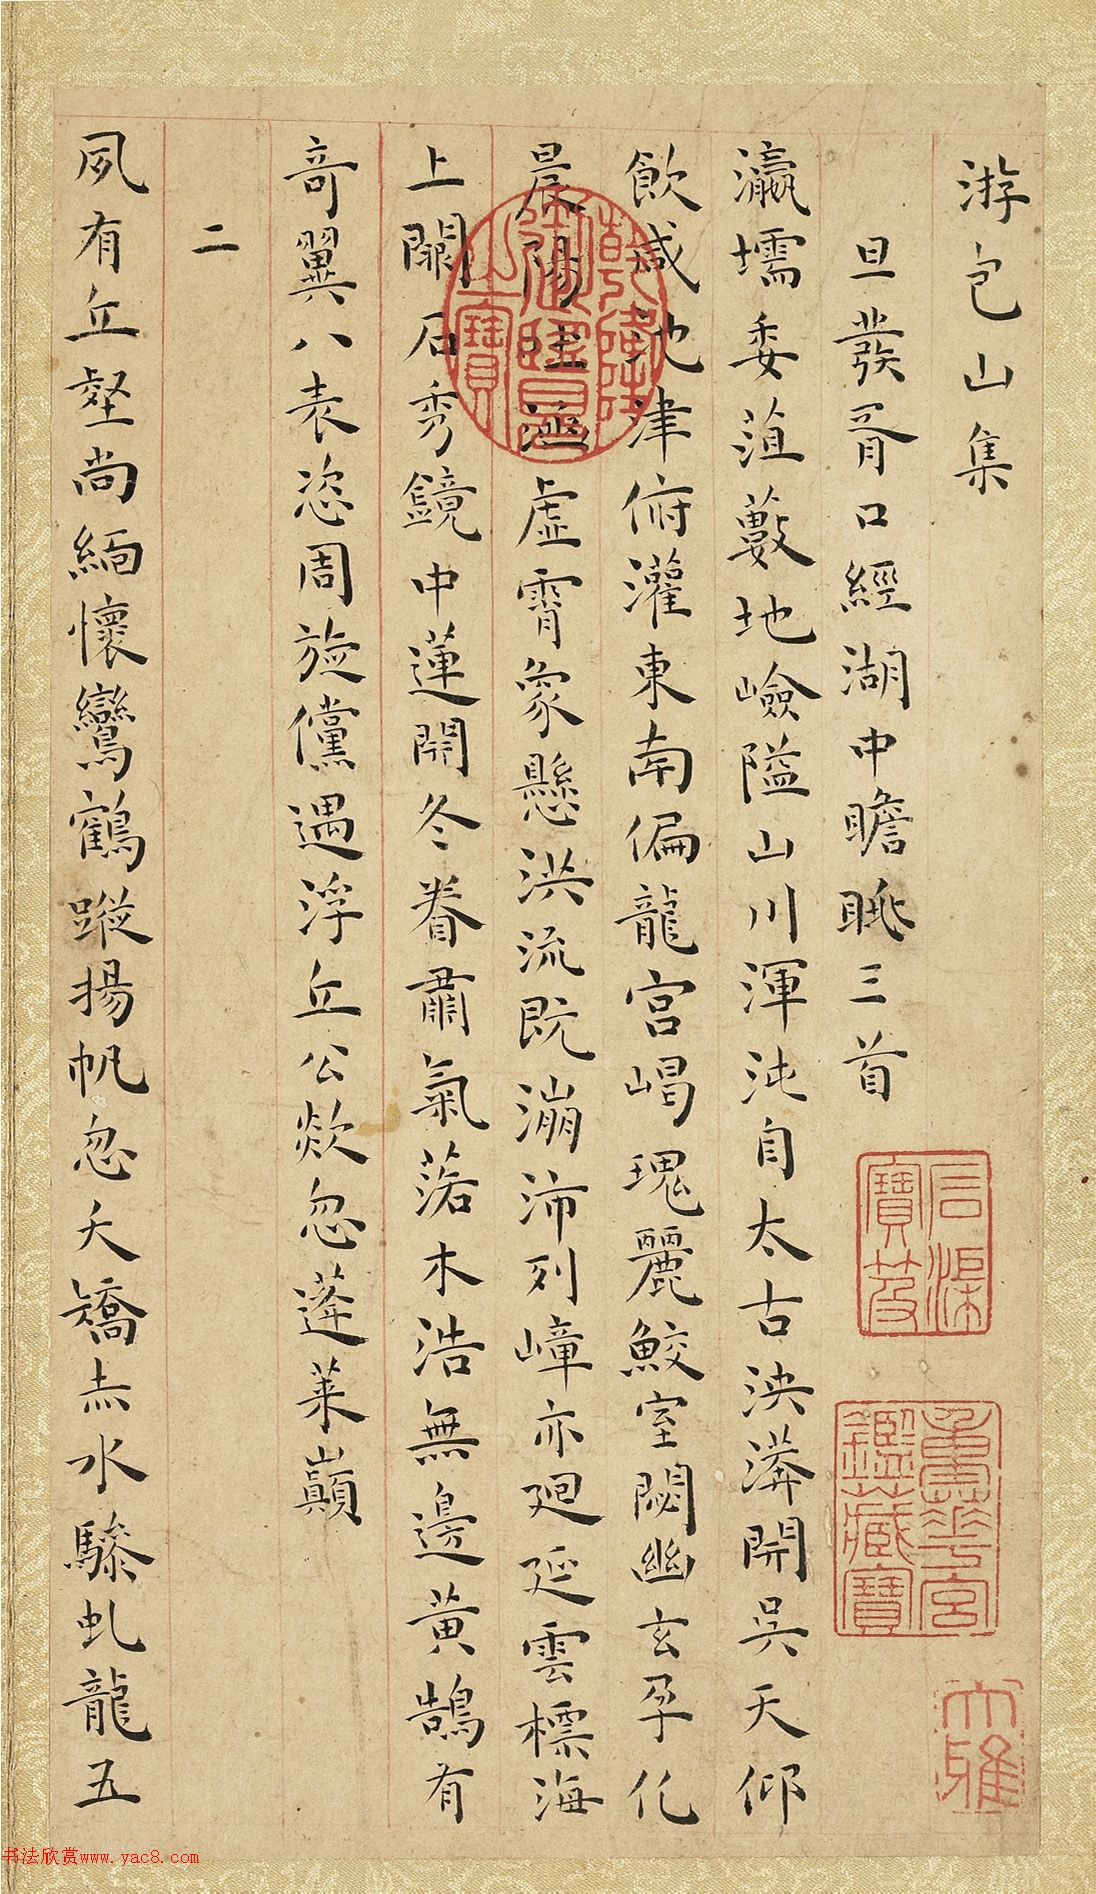 游包山集
旦發胥口經湖中瞻眺三首
瀛壖委菹藪地嶮隘山川渾沌自太古泱漭開吳天仰
飲咸池津俯灌東南偏龍宮嵑瑰麗鮫室閟幽玄孕化
晨陽上涵虛霄象懸洪流既漰沛列嶂亦迴延雲標海
上闕石秀鏡中蓮開冬眷肅氣落木浩無邊黃鵠有
奇翼八表恣周旋儻遇浮丘公欻忽蓬萊巔
二
夙有丘壑尚緬懷鸞鶴蹤揚帆忽夭矯赤水驂虬龍五
石渠寶笈
重華宮鑑藏寶
大雅
乾隆御覽之寶
书法欣赏www.yac8.com